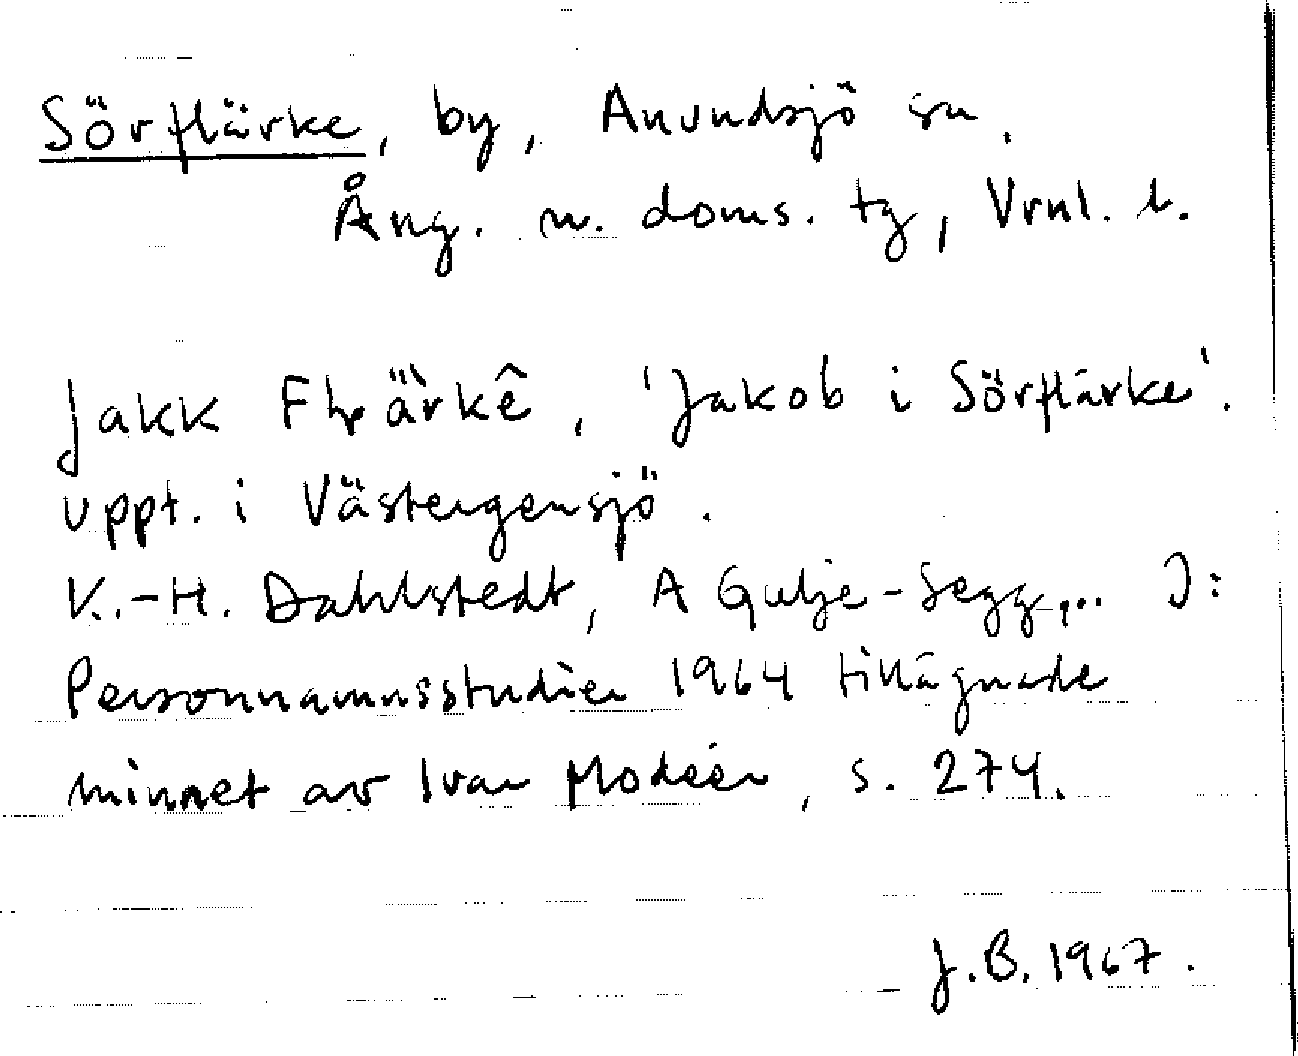 Sörflärke, by, Anundsjö sn.
Ång. n. doms. tg, Vrnl. l.
Jakk Flärkê, 'Jakob i Sörflärke'.
uppt. i Västergensjö.
K.-H. Dahlstedt, A Gulje-Segg... I:
Personnamnsstudier 1964 tillägnade
minnet av Ivar Modéer, s. 274.
J.B. 1967.